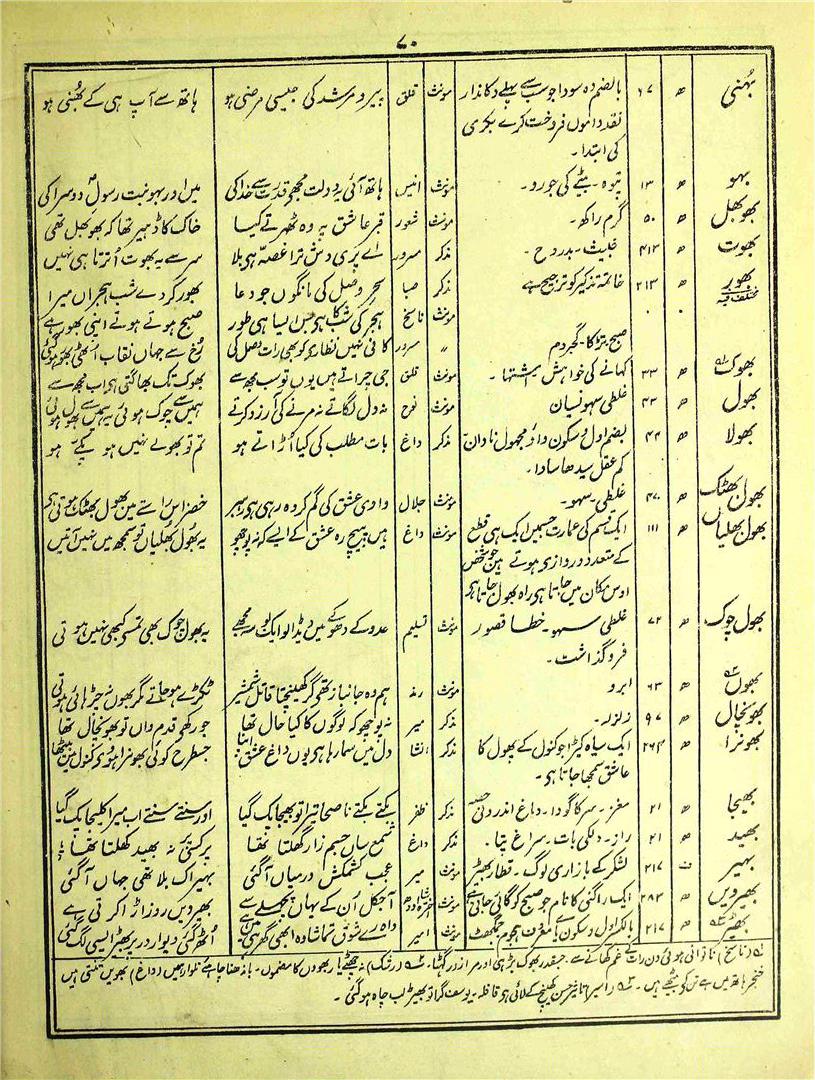 ۷۰
بُہنی ھ ۶۷ بالضم وہ سودا جو سب سے پہلے دکاندار مونث قلق پیر و مرشد کی جیسی مرضی ہو ہاتھ سے آپ ہی کے بُہنی ہو
نقد داموں فروخت کرے بکری
کی ابتدا۔
بہو ھ ۱۳ بیٹے کی جورو۔ مونث انیس ہاتھ آئی یہ دولت مجھے قدرت سے خدا کی میں اور بہو بنت رسولؐ دوسرا کی
بھوبھل ھ ۵۰ گرم راکھ۔ مونث شعور قبر عاشق پہ وہ ٹھہرتے کیسا خاک کا ڈہیر تھا کہ بھوبھل تھی
بھوت ھ ۴۱۳ خبیث۔ بدروح۔ مذکر سرور اے پری وش ترا غصہ ہی بلا سر سے یہ بھوت اُترتا ہی نہیں
بھور ھ ۲۱۳ خاتمہ تذکیر کو ترجیح ہے مذکر صبا سحر وصل کی مانگوں جو دعا بھور کر دے شب ہجراں میرا
مختلف فیہ مونث ناسخ ہجر کی شب کا ہی اس ایسا ہی طور صبح ہوتے ہوتے اپنی بھور ہے
صبح تڑکا۔ گجردم ״ سرور کافی نہیں نظارہ کو بھی رات وصل کی رُخ سے جہاں نقاب اُٹھی بھور ہو گئی
بھوک ھ ۳۳ کھانے کی خواہش اشتہا۔ مونث قلق جی چراتے ہیں یوں تو سب مجھ سے بھوک تک بھاگتی ہی اب مجھ سے
بھول ھ ۴۳ غلطی سہو نسیان مونث نوح نہ دل لگاتے نہ مرنے کی آرزو کرتے ہمیں سے چوک ہوئی یہ ہمیں سے بھول ہوئی
بھولا ھ ۴۴ بضم اول و سکون واؤ مجہول نادان مذکر داغ بات مطلب کی کیا اُڑاتے ہو تم تو بھولے نہیں ہو پکے ہو
کم عقل سیدھا سادا۔
بھول بھٹک ھ ۴۷ غلطی۔ سہو۔ مونث جلال وادی عشق کی گم کردہ رہی ہی رہبر خضر اس راستے میں بھول بھٹک ہوتی ہی
بھول بھلیاں ھ ۱۱۱ ایک قسم کی عمارت جسمیں ایک ہی قطع مونث داغ ہیں پیچ رہ عشق کے ایسے کہ نہ پوچھو یہ بھول بھلیاں تو سمجھ میں نہیں آتیں
کے متعدد دروازی ہوتے ہیں جو شخص
اوس مکان میں جاتا ہی راہ بھول جاتا ہی
بھول چوک ھ ۷۲ غلطی سہو خطا قصور مونث تسلیم عدو کے دھوکے میں دیڈالو ایک بوسہ مجھے یہ بھول چوک بھی تمسے کبھی نہیں ہوتی
فروگذاشت۔
بھوں ھ ۶۳ ابرو مونث رند ہم وہ جانباز تھے گر کھینچتا قاتل شمشیر ٹکڑے ہو جاتے مگر بھوں نہ چڑہائی ہوتی
بھونچال ھ ۹۷ زلزلہ۔ مذکر میر نہ پوچھو کہ لوگوں کا کیا حال تھا جو رکھے قدم واں تو بھونچال تھا
بھونرا ھ ۲۶۴ ایک سیاہ کیڑا جو کنول کے پھول کا مذکر انشا دل میں سما رہا ہی یوں داغ عشق اپنا جسطرح کوئی بھونرا ہووے کنول میں بیٹھا
عاشق سمجھا جاتا ہی۔
بھیجا ھ ۲۱ مغز۔ سر کا گودا۔ دماغ اندرونی حصہ مذکر ظفر بکتے بکتے ناصحا تیرا تو بھیجا پک گیا اور سنتے سنتے اب میرا کلیجا پک گیا
بھید ھ ۲۱ راز۔ دلکی بات۔ سراغ پتا۔ مذکر داغ شمع ساں جسم زار گھلتا تھا پر کسی پر نہ بھید کھلتا تھا
بہیر ف ۲۱۷ لشکر کے بازاری لوگ۔ قطار بھیڑ مونث میر عجب کشمکش درمیاں آ گئی بہیر اک بلا تھی جہاں آ گئی
بھیرویں ھ ۲۸۳ ایک راگنی کا نام جو صبح کو گائی جاتی ہے مونث آجکل اُن کے یہاں پچھلے سے بھیرویں روز اڑا کرتی ہے
بھیڑ ھ ۲۱۷ بالکسر اول و سکون یائے معروف ہجوم جمگھٹ مونث امیر واہ رے شوق تماشا وہ ابھی گھر میں ہیں اُٹھ گئی دیوار در پر بھیڑ ایسی لگ گئی
(ناسخ) ناتوانی ہوئی دن رات غم کھانے سے۔ جسقدر بھوک بڑہی اور مرا زور گھٹا۔ (رشک) نہ چھٹے یار بھووں کا مضموں۔ باندھنا چاہئے تلوار ہمیں (داغ) بھویں تنتی ہیں
خنجر ہاتھ میں ہے تن کے بیٹھے ہیں۔ (اسیر) تاثیر حسن کھینچ کے لائی ہی قافلہ۔ یوسف گرا تو بھیڑ لب چاہ ہو گئی۔